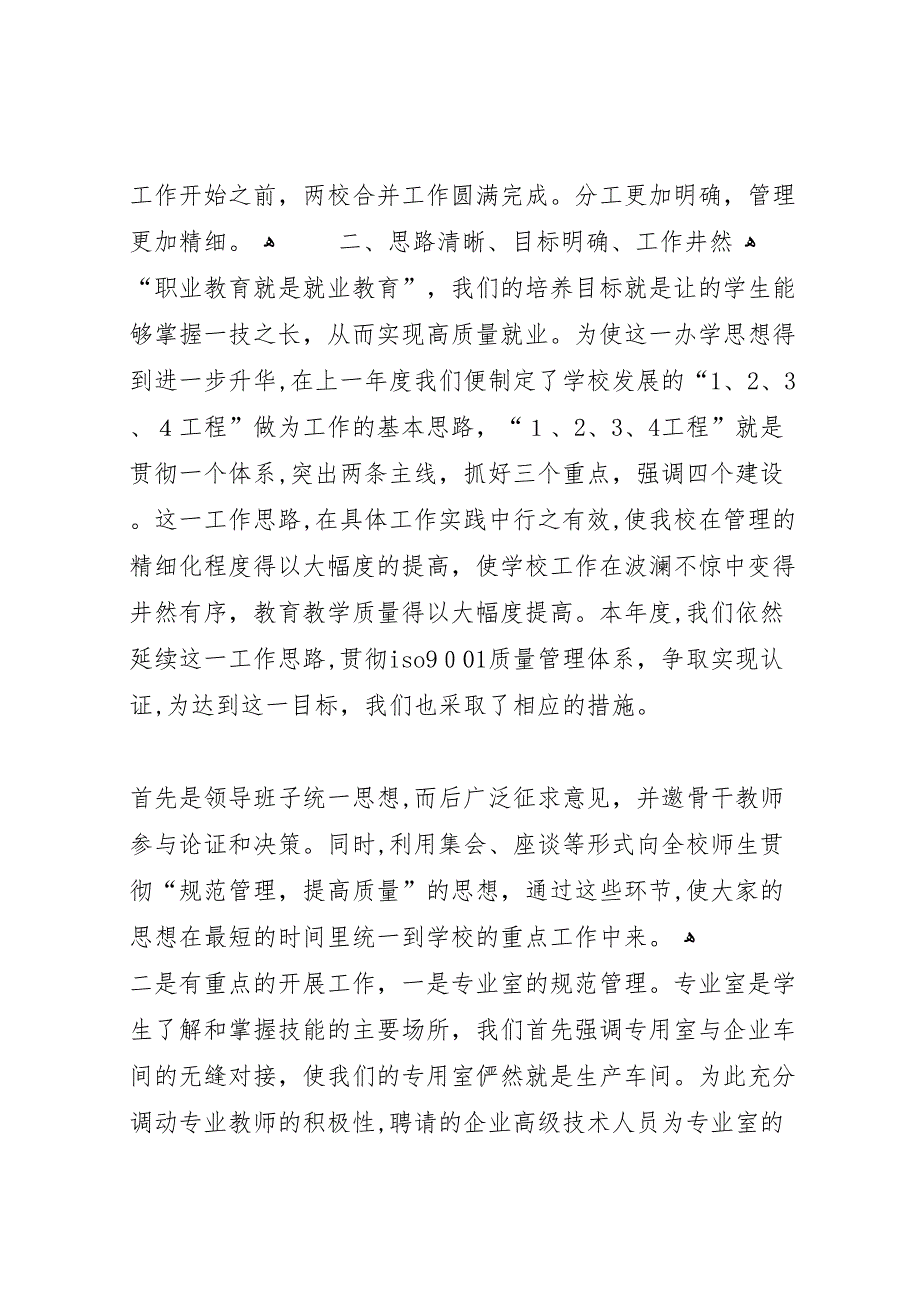 工作开始之前，两校合并工作圆满完成。分工更加明确，管理
更加精细。 ﻫ 二、思路清晰、目标明确、工作井然 ﻫ
“职业教育就是就业教育”，我们的培养目标就是让的学生能
够掌握一技之长，从而实现高质量就业。为使这一办学思想得
到进一步升华,在上一年度我们便制定了学校发展的“1、2、3
、４工程”做为工作的基本思路，“１、2、3、4工程”就是
贯彻一个体系,突出两条主线，抓好三个重点，强调四个建设
。这一工作思路,在具体工作实践中行之有效,使我校在管理的
精细化程度得以大幅度的提高，使学校工作在波澜不惊中变得
井然有序，教育教学质量得以大幅度提高。本年度,我们依然
延续这一工作思路,贯彻iso9００1质量管理体系，争取实现认
证,为达到这一目标，我们也采取了相应的措施。
首先是领导班子统一思想,而后广泛征求意见，并邀骨干教师
参与论证和决策。同时,利用集会、座谈等形式向全校师生贯
彻“规范管理，提高质量”的思想，通过这些环节,使大家的
思想在最短的时间里统一到学校的重点工作中来。 ﻫ
二是有重点的开展工作，一是专业室的规范管理。专业室是学
生了解和掌握技能的主要场所，我们首先强调专用室与企业车
间的无缝对接，使我们的专用室俨然就是生产车间。为此充分
调动专业教师的积极性,聘请的企业高级技术人员为专业室的